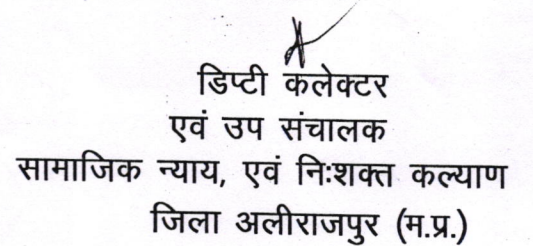 डिप्टी कलेक्टर
एवं उप संचालक
सामाजिक न्याय, एवं निःशक्त कल्याण
जिला अलीराजपुर (म.प्र.)